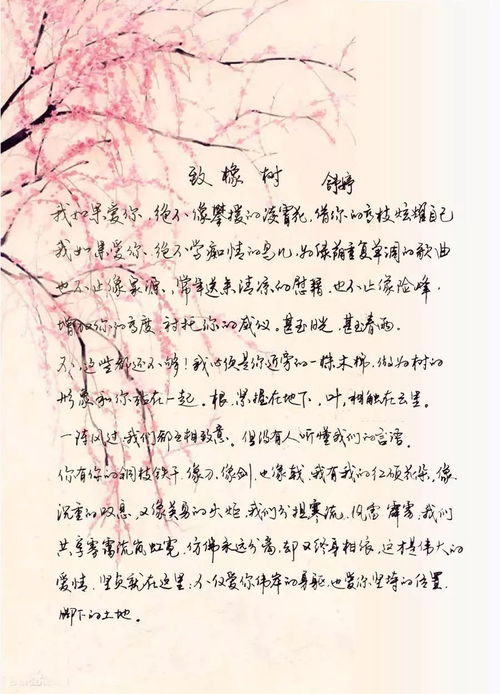 致橡树 舒婷
我如果爱你,绝不像攀援的凌霄花,借你的高枝炫耀自己
我如果爱你,绝不学痴情的鸟儿,为绿荫重复单调的歌曲
也不止像泉源,常年送来清凉的慰藉,也不止像险峰,
增加你的高度,衬托你的威仪。甚至日光,甚至春雨。
不,这些都还不够!我必须是你近旁的一株木棉,做为树的
形象和你站在一起。根,紧握在地下,叶,相触在云里。
一阵风过,我们都互相致意,但没有人听懂我们的言语。
你有你的铜枝铁干,像刀,像剑,也像戟,我有我的红硕花朵,像
沉重的叹息,又像英勇的火炬,我们分担寒流,风雷,霹雳,我们
共享雾霭流岚虹霓,仿佛永远分离,却又终身相依,这才是伟大的
爱情,坚贞就在这里:不仅爱你伟岸的身躯,也爱你坚持的位置,
脚下的土地。